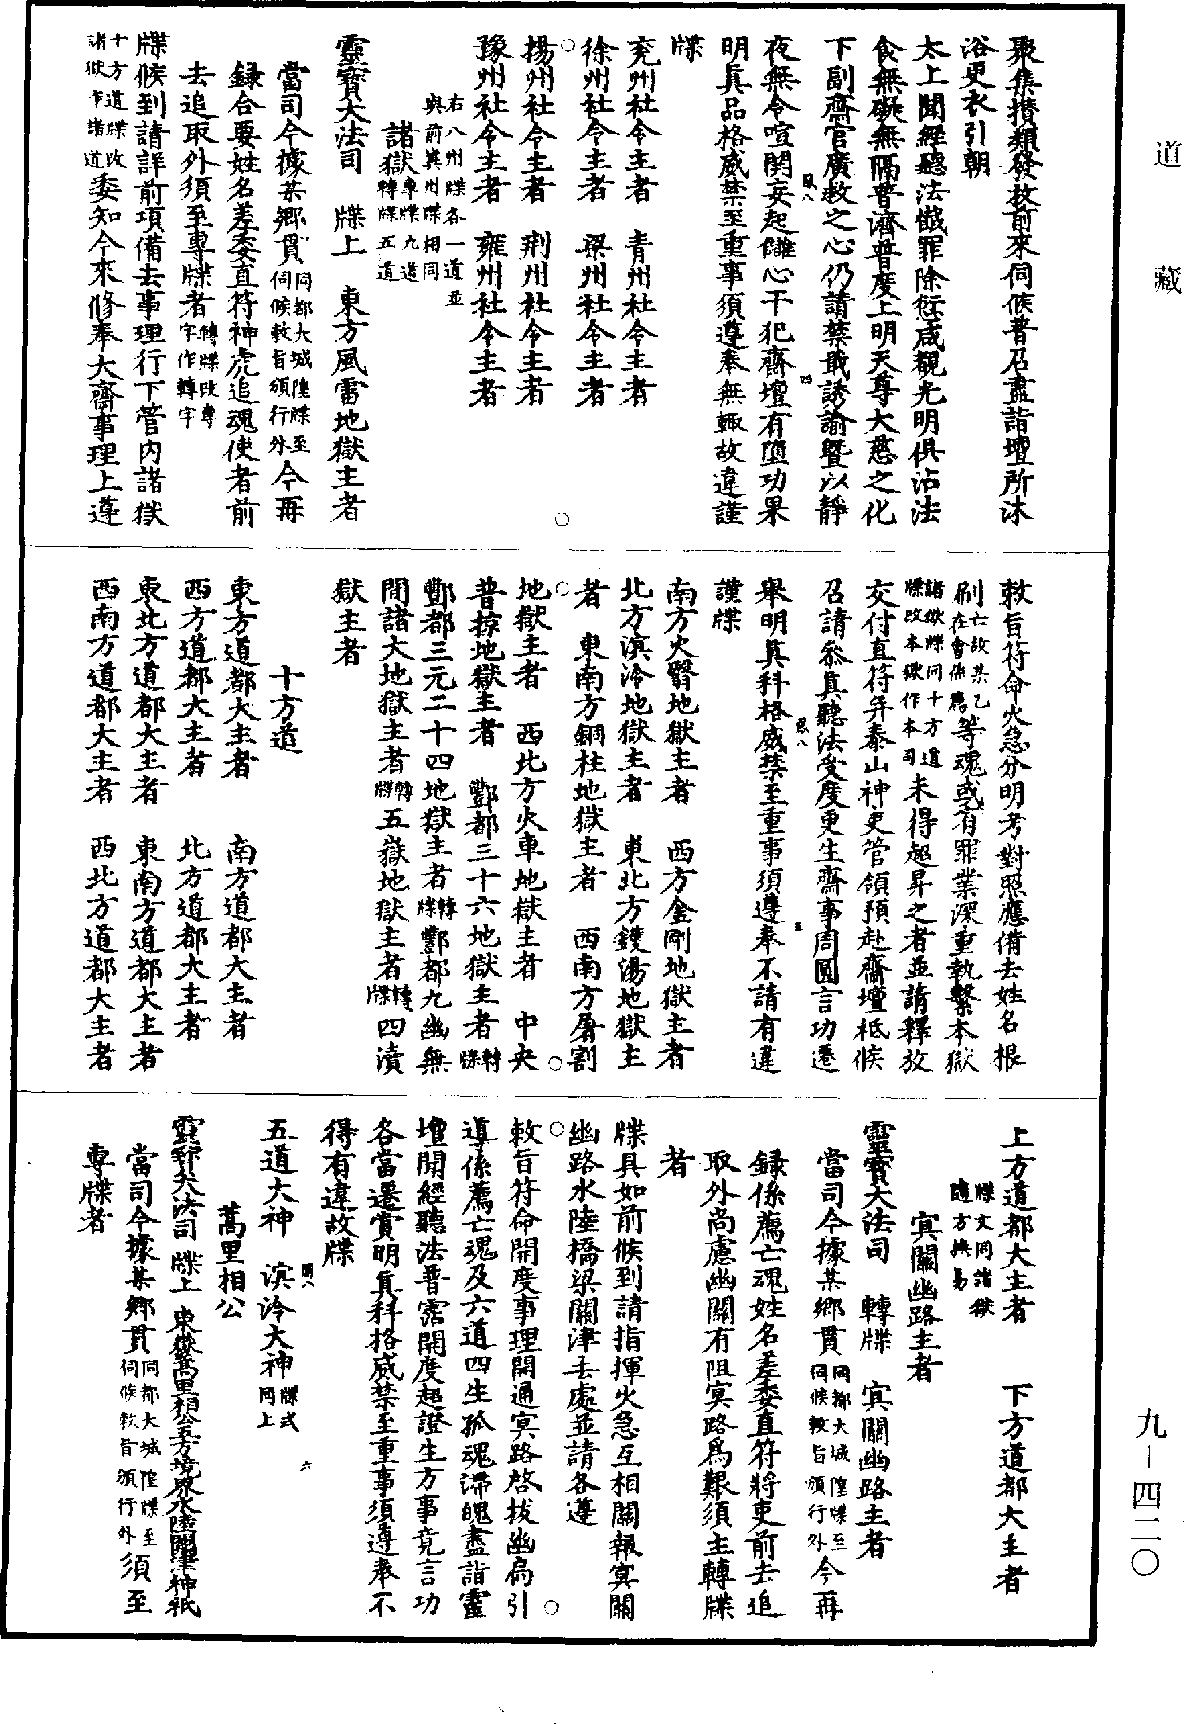 道藏
九—四二〇
聚集攅類發放前來伺候普召盡詣壇所沐
浴更衣引朝
太上聞經聽法懺罪除愆咸覩光明俱沾法
食無礙無隔普濟普度上明天尊大慈之化
下副齋官廣救之心仍請禁戢誘諭暨以靜
夜無令喧鬧妄起雠心干犯齋壇有墮功果
明眞品格威禁至重事須遵奉無輙故違謹
牒
兖州社令主者　青州社令主者
徐州社令主者　梁州社令主者
揚州社令主者　荆州社令主者
豫州社令主者　雍州社令主者
右八州牒各一道並
與前兾州牒相同
諸獄專牒九道
轉牒五道
靈寳大法司　牒上　東方風雷地獄主者
當司今據某鄉貫同都大城隍牒至
伺候敕旨頒行外今再
録合要姓名差委直符神虎追魂使者前
去追取外須至專牒者轉牒改專
字作轉字
牒候到請詳前項備去事理行下管内諸獄
十方道牒改
諸獄作諸道委知今來修奉大齋事理上遵
敕旨符命火急分明考對照應備去姓名根
刷亡故某乙
在會係薦等魂或有罪業深重執繫本獄
諸獄牒同十方道
牒改本獄作本司未得超昇之者並請釋放
交付直符并泰山神吏管領預赴齋壇祇候
召請叅眞聽法受度更生齋事周圓言功遷
舉明眞科格威禁至重事須遵奉不請有違
謹牒
南方火翳地獄主者　西方金剛地獄主者
北方溟泠地獄主者　東北方鑊湯地獄主
者　東南方銅柱地獄主者　西南方屠割
地獄主者　西北方火車地獄主者　中央
普掠地獄主者　酆都三十六地獄主者轉牒
酆都三元二十四地獄主者轉牒酆都九幽無
間諸大地獄主者轉牒五嶽地獄主者轉牒四瀆
獄主者
十方道
東方道都大主者　南方道都大主者
西方道都大主者　北方道都大主者
東北方道都大主者　東南方道都大主者
西南方道都大主者　西北方道都大主者
上方道都大主者　下方道都大主者
牒文同諸獄
隨方換易
冥關幽路主者
靈寳大法司　轉牒　冥關幽路主者
當司今據某鄉貫同都大城隍牒至
伺候敕旨頒行外今再
録係薦亡魂姓名差委直符將吏前去追
取外尚慮幽關有阻冥路爲艱須至轉牒
者
牒具如前候到請指揮火急互相關報冥關
幽路水陸橋梁關津去處並請各遵
敕旨符命開度事理開通冥路啓拔幽扃引
導係薦亡魂及六道四生孤魂滯魄盡詣靈
壇開經聽法普霑開度超證生方事竟言功
各當遷賞明眞科格威禁至重事須遵奉不
得有違故牒
五道大神　溟泠大神牒式
同上
蒿里相公
靈寳大法司　牒上　東嶽蒿里相公方境界水陸關津神祇
當司今據某鄉貫同都大城隍牒至
伺候敕旨頒行外須至
專牒者